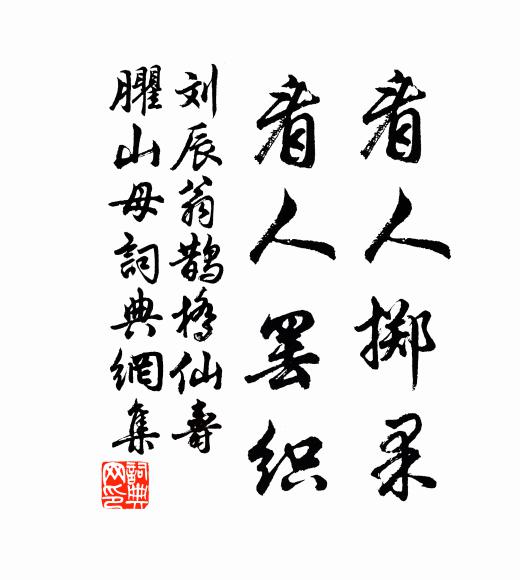 看人掷果
看人罢织
刘辰翁鹊桥仙寿
臞山母詞典網集
詞典网印